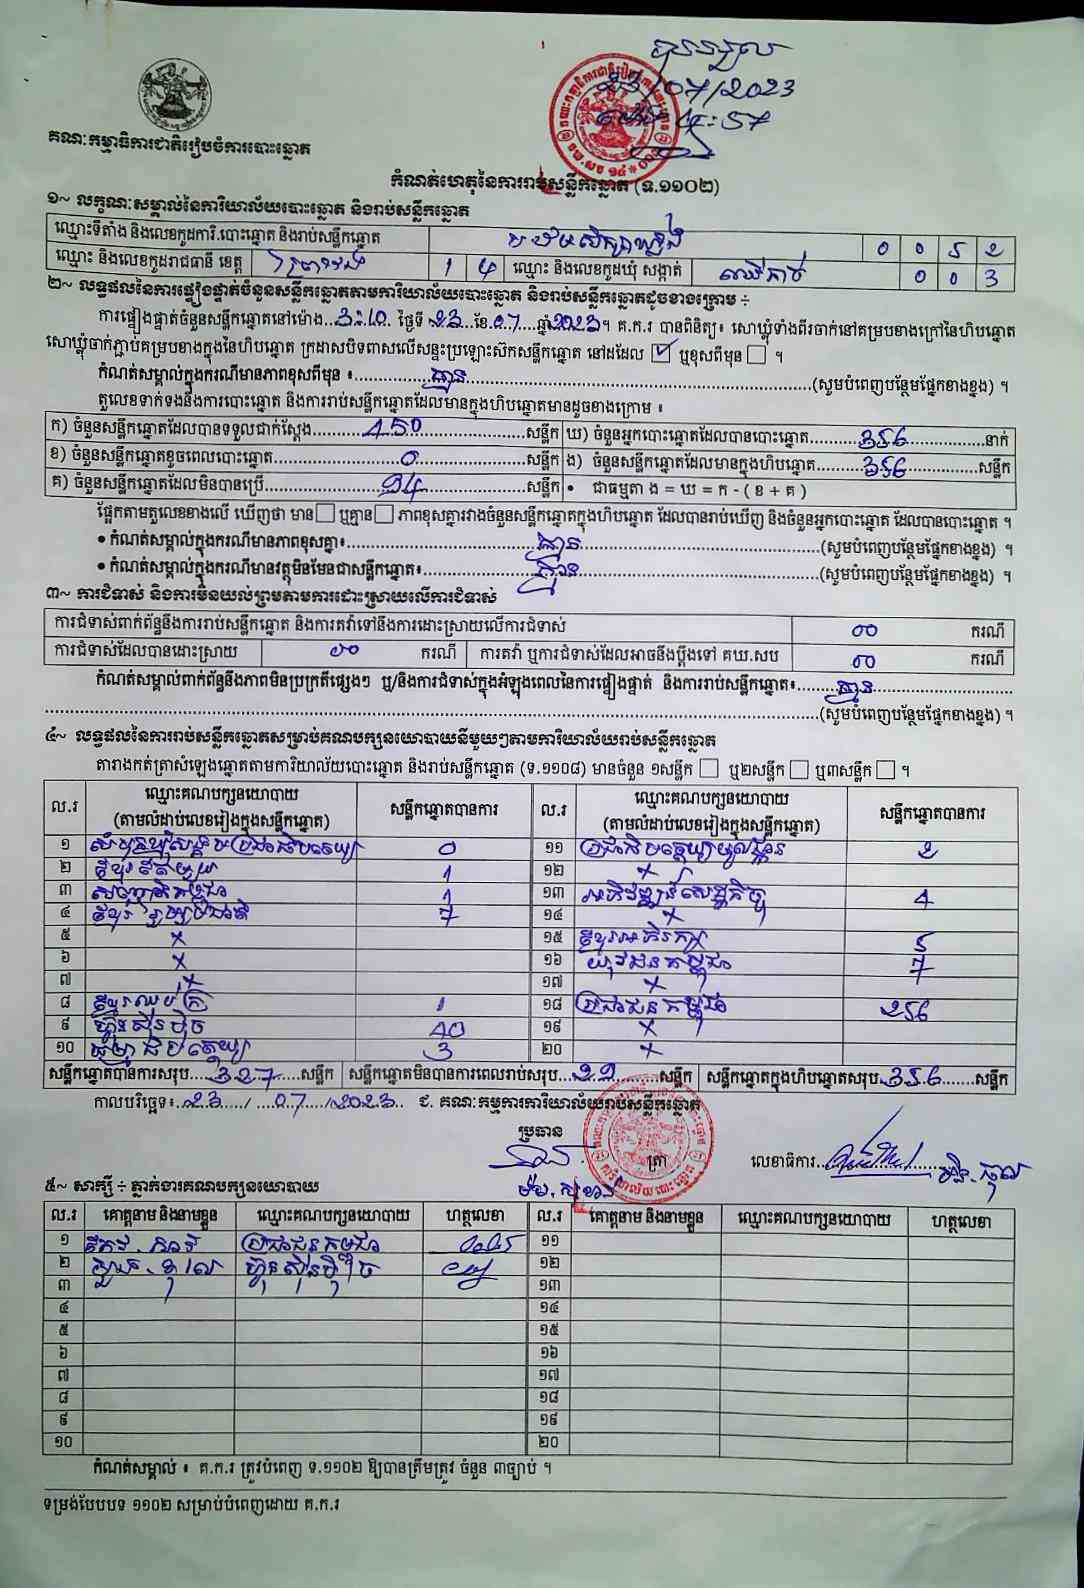 23/07/2023
៤:57
គណៈកម្មាធិការជាតិរៀបចំការបោះឆ្នោត
កំណត់ហេតុនៃការរាប់សន្លឹកឆ្នោត (ទ.១១០២)
១~ លក្ខណៈសម្គាល់នៃការិយាល័យបោះឆ្នោត និងរាប់សន្លឹកឆ្នោត
ឈ្មោះទីតាំង និងលេខកូដការិ.បោះឆ្នោត និងរាប់សន្លឹកឆ្នោត 0 0 5 2
ឈ្មោះ និងលេខកូដរាជធានី ខេត្ត ព្រៃវែង 1 4 ឈ្មោះ និងលេខកូដឃុំ សង្កាត់ ឈើកាច់ 0 0 3
២~ លទ្ធផលនៃការផ្ទៀងផ្ទាត់ចំនួនសន្លឹកឆ្នោតតាមការិយាល័យបោះឆ្នោត និងរាប់សន្លឹកឆ្នោតដូចខាងក្រោម ÷
ការផ្ទៀងផ្ទាត់ចំនួនសន្លឹកឆ្នោតនៅម៉ោង...3:10 ថ្ងៃទី 23 ខែ 07 ឆ្នាំ 2023។ គ.ក.រ បានពិនិត្យ៖ សោឃ្លុំទាំងពីរចាក់នៅគម្របខាងក្រៅនៃហិបឆ្នោត
សោឃ្លុំចាក់ភ្ជាប់គម្របខាងក្នុងនៃហិបឆ្នោត ក្រដាសបិទពាសលើសន្ទះប្រឡោះស៊កសន្លឹកឆ្នោត នៅដដែល ☑ ឬខុសពីមុន ☐ ។
កំណត់សម្គាល់ក្នុងករណីមានភាពខុសពីមុន ៖ គ្មាន (សូមបំពេញបន្ថែមផ្នែកខាងខ្នង) ។
តួលេខទាក់ទងនឹងការបោះឆ្នោត និងការរាប់សន្លឹកឆ្នោតដែលមានក្នុងហិបឆ្នោតមានដូចខាងក្រោម ៖
ក) ចំនួនសន្លឹកឆ្នោតដែលបានទទួលជាក់ស្តែង 450 សន្លឹក ឃ) ចំនួនអ្នកបោះឆ្នោតដែលបានបោះឆ្នោត 356 នាក់
ខ) ចំនួនសន្លឹកឆ្នោតខូចពេលបោះឆ្នោត 0 សន្លឹក ង) ចំនួនសន្លឹកឆ្នោតដែលមានក្នុងហិបឆ្នោត 356 សន្លឹក
គ) ចំនួនសន្លឹកឆ្នោតដែលមិនបានប្រើ 94 សន្លឹក • ជាធម្មតា ង = ឃ = ក - ( ខ + គ )
ផ្អែកតាមតួលេខខាងលើ ឃើញថា មាន ☐ ឬគ្មាន ☐ ភាពខុសគ្នារវាងចំនួនសន្លឹកឆ្នោតក្នុងហិបឆ្នោត ដែលបានរាប់ឃើញ និងចំនួនអ្នកបោះឆ្នោត ដែលបានបោះឆ្នោត ។
• កំណត់សម្គាល់ក្នុងករណីមានភាពខុសគ្នា៖ គ្មាន (សូមបំពេញបន្ថែមផ្នែកខាងខ្នង) ។
• កំណត់សម្គាល់ក្នុងករណីមានវត្ថុមិនមែនជាសន្លឹកឆ្នោត៖ គ្មាន (សូមបំពេញបន្ថែមផ្នែកខាងខ្នង) ។
៣~ ការជំទាស់ និងការមិនយល់ព្រមតាមការដោះស្រាយលើការជំទាស់
ការជំទាស់ពាក់ព័ន្ធនឹងការរាប់សន្លឹកឆ្នោត និងការតវ៉ាទៅនឹងការដោះស្រាយលើការជំទាស់ 00 ករណី
ការជំទាស់ដែលបានដោះស្រាយ 00 ករណី ការតវ៉ា ឬការជំទាស់ដែលអាចនឹងប្តឹងទៅ គឃ.សប 00 ករណី
កំណត់សម្គាល់ពាក់ព័ន្ធនឹងភាពមិនប្រក្រតីផ្សេងៗ ឬ/និងការជំទាស់ក្នុងអំឡុងពេលនៃការផ្ទៀងផ្ទាត់ និងការរាប់សន្លឹកឆ្នោត៖ គ្មាន
(សូមបំពេញបន្ថែមផ្នែកខាងខ្នង) ។
៤~ លទ្ធផលនៃការរាប់សន្លឹកឆ្នោតសម្រាប់គណបក្សនយោបាយនីមួយៗតាមការិយាល័យរាប់សន្លឹកឆ្នោត
តារាងកត់ត្រាសំឡេងឆ្នោតតាមការិយាល័យបោះឆ្នោត និងរាប់សន្លឹកឆ្នោត (ទ.១១០៨) មានចំនួន ១សន្លឹក ☐ ឬ២សន្លឹក ☐ ឬ៣សន្លឹក ☐ ។
ល.រ ឈ្មោះគណបក្សនយោបាយ (តាមលំដាប់លេខរៀងក្នុងសន្លឹកឆ្នោត) សន្លឹកឆ្នោតបានការ ល.រ ឈ្មោះគណបក្សនយោបាយ (តាមលំដាប់លេខរៀងក្នុងសន្លឹកឆ្នោត) សន្លឹកឆ្នោតបានការ
១ សំបុកឃ្មុំសង្គមប្រជាធិបតេយ្យ 0 ១១ ប្រជាធិបតេយ្យមូលដ្ឋាន 2
២ ខ្មែររួបរួម 1 ១២ x
៣ សញ្ជាតិកម្ពុជា 1 ១៣ អភិវឌ្ឍន៍សេដ្ឋកិច្ច 4
៤ ខ្មែរ 7 ១៤ x
៥ x ១៥ ខ្មែរអភិរក្ស 5
៦ x ១៦ យុវជនកម្ពុជា 7
៧ x ១៧ x
៨ ខ្មែរឈប់ក្រ 1 ១៨ ប្រជាជនកម្ពុជា 256
៩ ហ្វ៊ុនស៊ិនប៉ិច 40 ១៩ x
១០ ធម្មាធិបតេយ្យ 3 ២០ x
សន្លឹកឆ្នោតបានការសរុប 327 សន្លឹក សន្លឹកឆ្នោតមិនបានការពេលរាប់សរុប 29 សន្លឹក សន្លឹកឆ្នោតក្នុងហិបឆ្នោតសរុប 356 សន្លឹក
កាលបរិច្ឆេទ៖ 23/07/2023 ជ. គណៈកម្មការការិយាល័យរាប់សន្លឹកឆ្នោត
ប្រធាន ត្រា លេខាធិការ
៥~ សាក្សី ÷ ភ្នាក់ងារគណបក្សនយោបាយ
ល.រ គោត្តនាម និងនាមខ្លួន ឈ្មោះគណបក្សនយោបាយ ហត្ថលេខា ល.រ គោត្តនាម និងនាមខ្លួន ឈ្មោះគណបក្សនយោបាយ ហត្ថលេខា
១ ប្រជាជនកម្ពុជា ១១
២ ហ្វ៊ុនស៊ិនប៉ិច ១២
៣ ១៣
៤ ១៤
៥ ១៥
៦ ១៦
៧ ១៧
៨ ១៨
៩ ១៩
១០ ២០
កំណត់សម្គាល់ ៖ គ.ក.រ ត្រូវបំពេញ ទ.១១០២ ឱ្យបានត្រឹមត្រូវ ចំនួន ៣ច្បាប់ ។
ទម្រង់បែបបទ ១១០២ សម្រាប់បំពេញដោយ គ.ក.រ